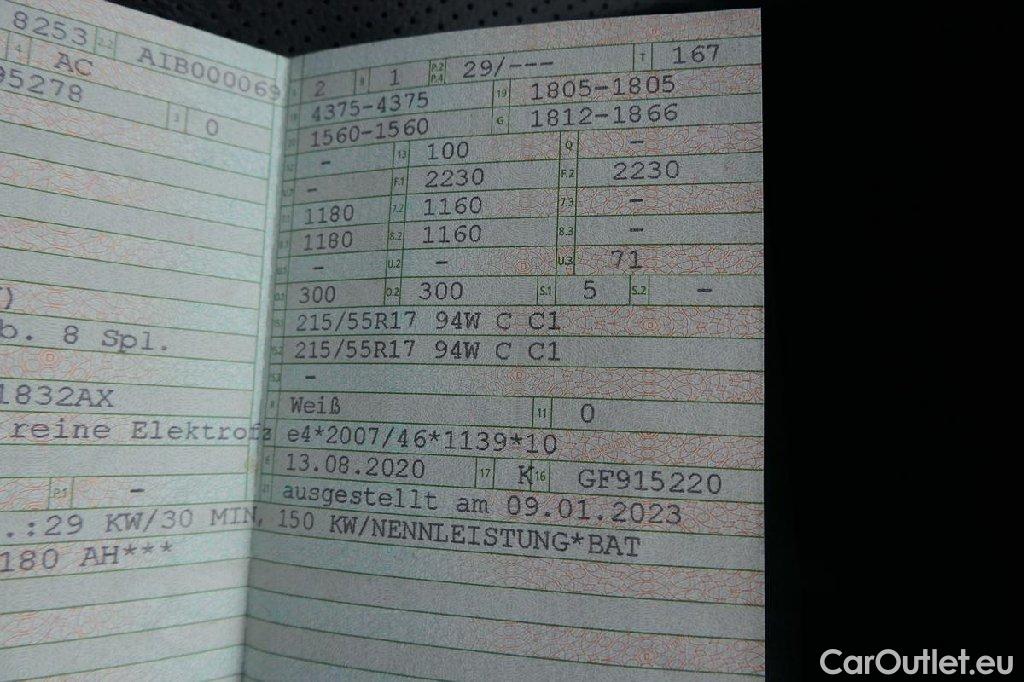 8253 2.2 AIB000069
4 AC
95278 3 0
)
b. 8 Spl.
1832AX
reine Elektrofz
P.1 -
.:29 KW/30 MIN, 150 KW/NENNLEISTUNG*BAT
180 AH***
2 9 1 P.2 P.4 29/--- T 167
4375-4375 19 1805-1805
1560-1560 G 1812-1866
- 13 100 Q -
- F.1 2230 F.2 2230
1180 7.2 1160 7.3 -
1180 8.2 1160 8.3 -
- U.2 - U.3 71
O.1 300 O.2 300 S.1 5 S.2 -
215/55R17 94W C C1
215/55R17 94W C C1
-
Weiß 11 0
e4*2007/46*1139*10
6 13.08.2020 17 K 16 GF915220
21 ausgestellt am 09.01.2023
CarOutlet.eu